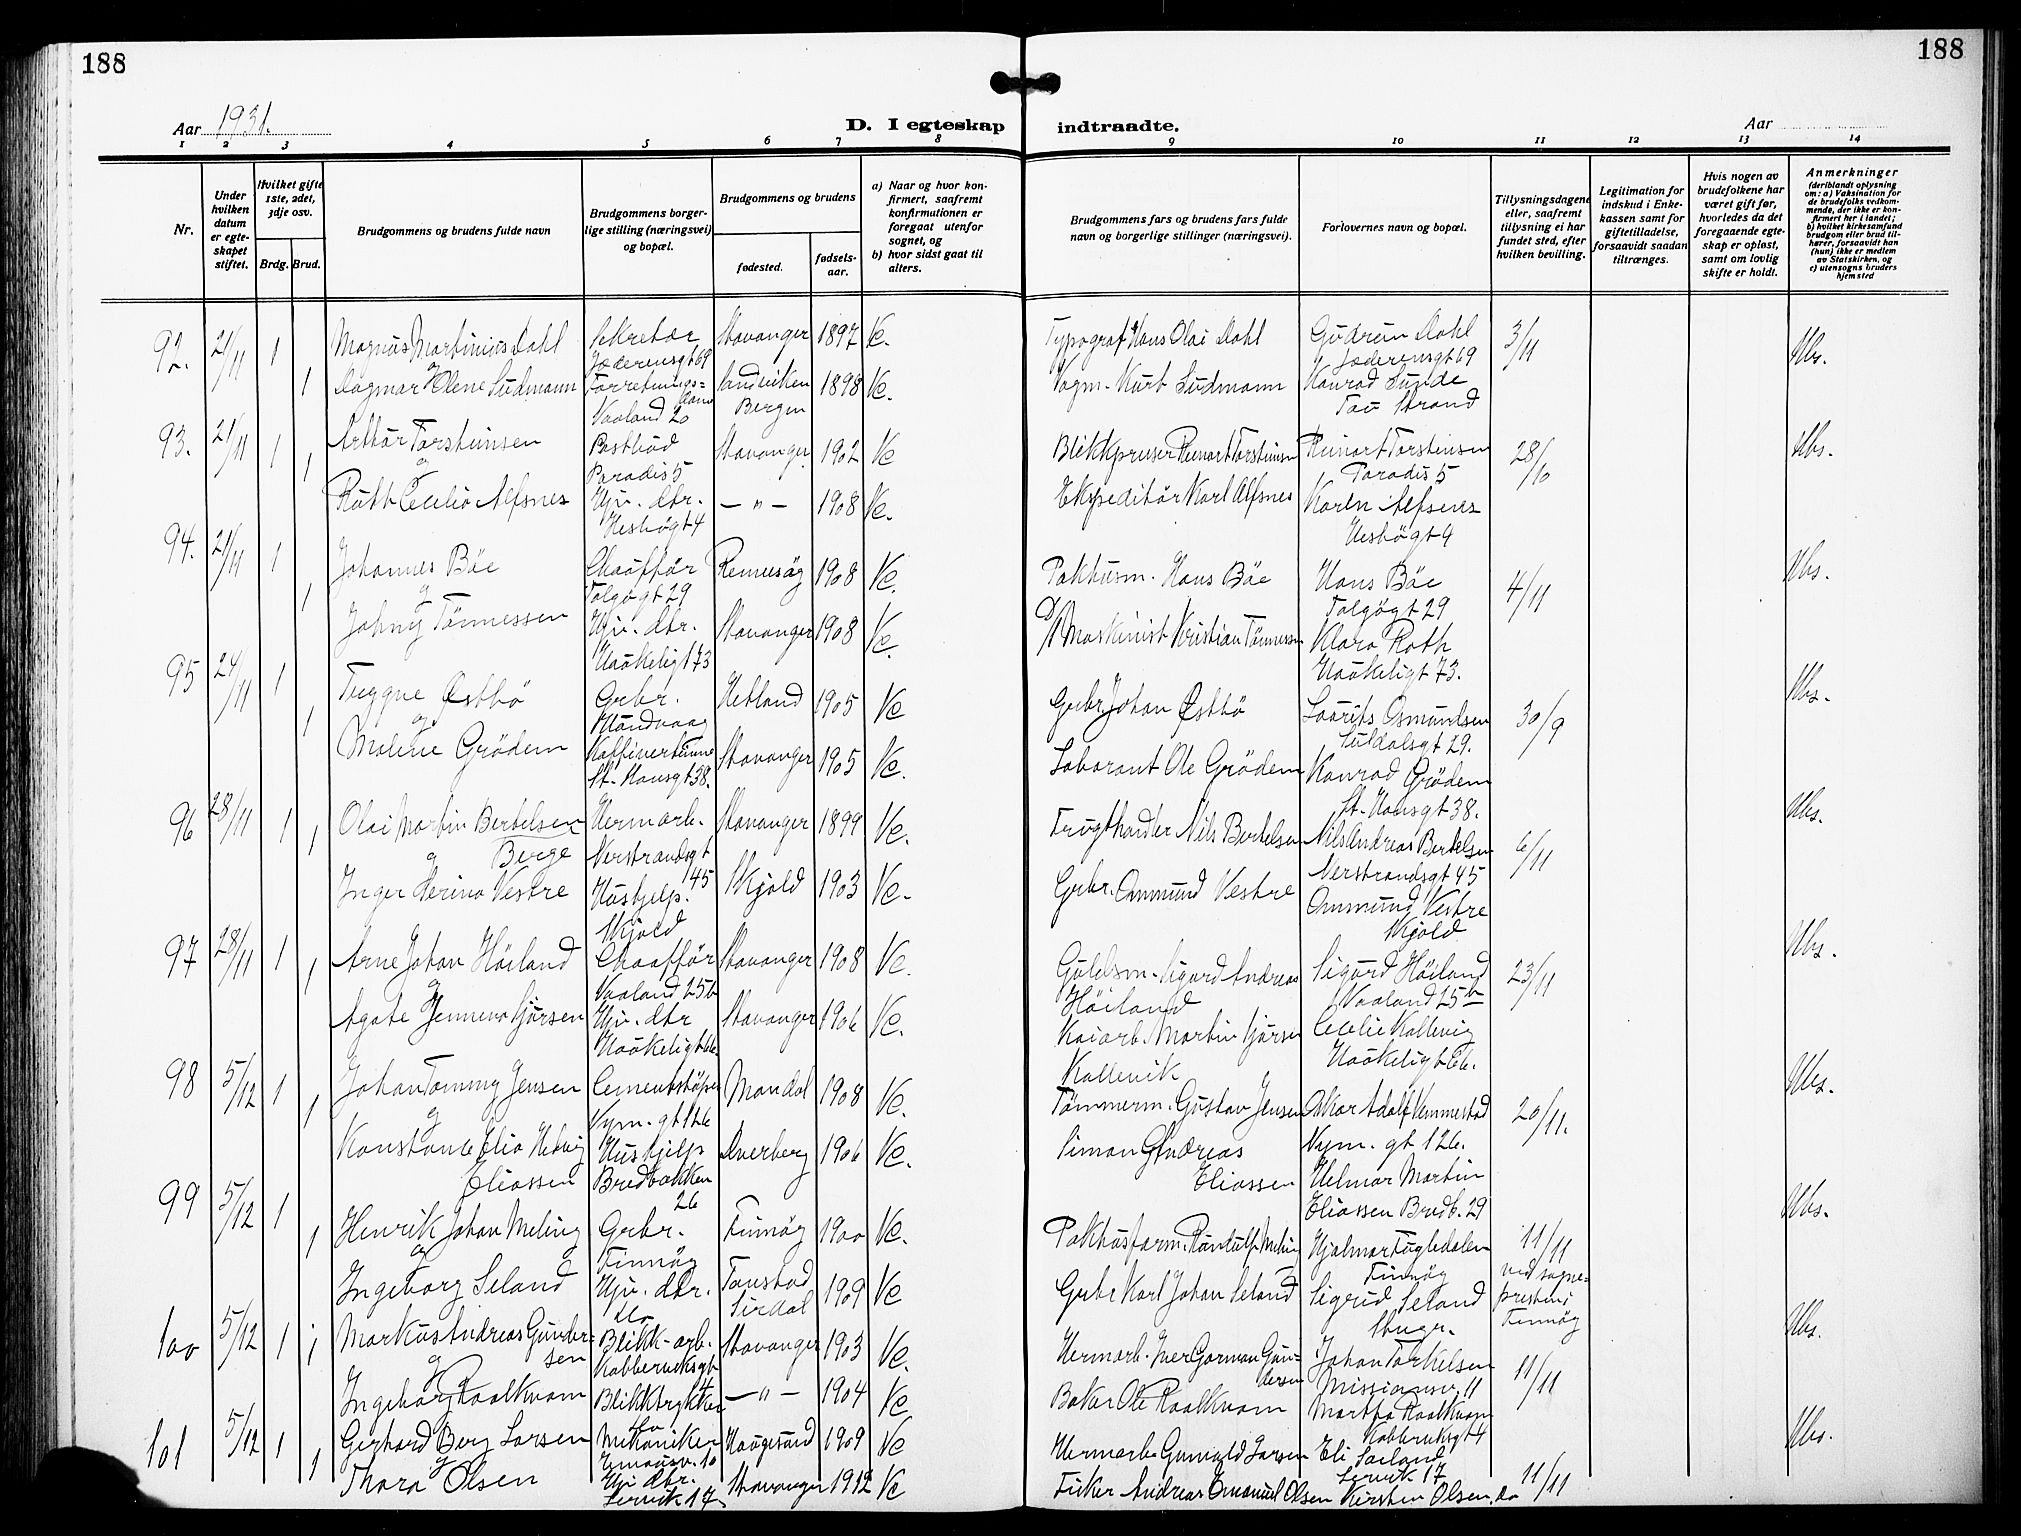 188
188
Aar 1931.
D. I egteskap
indtraadte.
Aar
1 2 3 4 5 6 7 8
9 10 11 12 13 14
Nr.
Under hvilken datum er egte-skapet stiftet.
Hvilket gifte 1ste, 2det, 3dje osv.
Brdg. Brud.
Brudgommens og brudens fulde navn
Brudgommens borger-lige stilling (næringsvei) og bopæl.
Brudgommens og brudens
fødested.
fødsels-aar.
a) Naar og hvor kon-firmert, saafremt konfirmationen er foregaat utenfor sognet, og
b) hvor sidst gaat til alters.
Brudgommens fars og brudens fars fulde navn og borgerlige stillinger (næringsvei).
Forlovernes navn og bopæl.
Tillysningsdagene eller, saafremt tillysning ei har fundet sted, efter hvilken bevilling.
Legitimation for indskud i Enke-kassen samt for giftetilladelse, forsaavidt saadan tiltrænges.
Hvis nogen av brudefolkene har været gift før, hvorledes da det foregaaende egte-skap er opløst, samt om lovlig skifte er holdt.
Anmerkninger (deriblandt oplysning om: a) Vaksination for de brudefolks vedkom-mende, der ikke er kon-firmert her i landet; b) hvilket kirkesamfund brudgom eller brud til-hører, forsaavidt han (hun) ikke er medlem av Statskirken, og c) utensogns bruders hjemsted
92. 21/11 1 Magnus Martinius Dahl Sekretær Jæderensgt 69 Stavanger 1897 Ve. Typograf Hans Olai Dahl Gudrun Dahl Jæderensgt 69 3/11 Ubs.
og
1 Dagmar Olene Sudmann Forretnings=dame Vaaland 20 Sandviken Bergen 1898 Ve. Vogm. Kurt Sudmann Konrad Sunde Tau Strand
93. 21/11 1 Arthur Torsteinsen Postbud Paradis 5 Stavanger 1902 Ve Blikkpresser Reinart Torsteinsen Reinart Torsteinsen Paradis 5 28/10 Ubs.
og
1 Ruth Cecilie Alfsnes Hjv. dtr. Hesbøgt 4 — " — 1908 Ve. Ekspeditør Karl Alfsnes Karen Alfsnes Hesbøgt 4
94. 21/11 1 Johannes Bøe Chauffør Talgøgt 29 Rennesøy 1908 Ve. Pakhusm. Hans Bøe Hans Bøe Talgøgt 29 4/11 Ubs.
og
1 Johny Tønnessen Hjv. dtr. Haukeligt 73 Stavanger 1908 Ve. Maskinist Kristian Tønnessen Klara Roth Haukeligt 73.
95 24/11 1 Tryggve Østbø Grbr. Hundvaag Hetland 1905 Ve Grbr. Johan Østbø Laurits Osmundsen Suldalsgt 29. 30/9 Ubs.
og
1 Malene Grødem Kaffivertinne St. Hansgt 38. Stavanger 1905 Ve. Laborant Ole Grødem Konrad Grødem St. Hansgt 38.
96 28/11 1 Olai Martin Bertelsen Berge Hermarb. Nerstrandsgt 45 Stavanger 1899 Ve. Frugthandler Nils Bertelsen Nils Andreas Bertelsen Nerstrandsgt 45 6/11 Ubs.
og
1 Inger Herina Vestre Hushjelp. Skjold Skjold 1903 Ve. Grbr. Ommund Vestre Ommund Vestre Skjold
97 28/11 1 Arne Johan Høiland Chauffør Vaaland 25b Stavanger 1908 Ve. Guldsm. Sigurd Andreas Høiland Sigurd Høiland Vaaland 25b 23/11 Ubs.
og
1 Agate Jennena Sjursen Hjv. dtr Haukeligt 66. Stavanger 1906 Ve. Kaiarb. Martin Sjursen Kallevik Cecilie Kallevig Haukeligt 66.
98 5/12 1 Johan Tommy Jensen Cementstøper Nym. gt 126 Mandal 1908 Ve. Tømmerm. Gustav Jensen Oskar Adolf Vemmestad Nym. gt 126. 20/11. Ubs.
og
1 Konstance Elia Hedvig Eliassen Hushjelp Bredbakken 26 Dverberg 1906 Ve. Simon Andreas Eliassen Helmar Martin Eliassen Bredb. 29
99 5/12 1 Henrik Johan Meling Grbr. Finnøy Finnøy 1900 Ve. Pakhusform. Rundulf Meling Hjalmar Fugledalen Finnøy 11/11 ved sogne=presten i Finnøy Ubs.
og
1 Ingeborg Seland Hjv. dtr. do Tonstad Sirdal 1909 Ve Grbr Karl Johan Seland Sigrid Seland Stvgr.
100 5/12 1 Markus Andreas Gunder=sen Blikk-arb. Kobberviksgt 4 Stavanger 1903 Ve. Hermarb. Iver Gorman Gun=dersen Johan Torkelsen Missionsv. 11 11/11 Ubs.
og
1 Ingeborg Raalkvam Blikktrykker do — " — 1904 Ve Baker Ole Raalkvam Martha Raalkvam Kobberviksgt 4
101 5/12 1 Gerhard Berg Larsen Mekaniker Emausv. 10 Haugesund 1909 Ve Hermarb. Gunvald Larsen Eli Søiland Lervik 17 11/11 Ubs.
og
1 Thora Olsen Hjv dtr. Lervik 17 Stavanger 1912 Ve Fisker Andreas Emanuel Olsen Kirsten Olsen, do